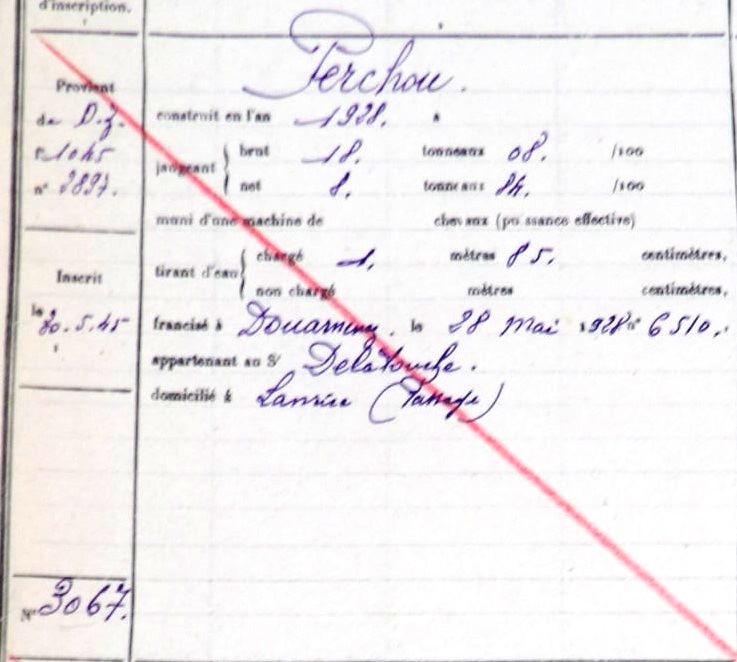 d'inscription.
Perchou.
Provient
de D.Z.
n° 2897.
construit en l'an 1928. à
jaugeant
brut 18. tonneaux 08. /100
net 8. tonneaux 84. /100
muni d'une machine de chevaux (puissance effective)
tirant d'eau
chargé 1. mètres 85. centimètres,
non chargé mètres centimètres,
Inscrit
le 30.5.45
francisé à Douarnenez, le 28 Mai 1928 n° 6510.
appartenant au Sr Delatouche.
domicilié à Lanriec (Passage)
N° 3067.